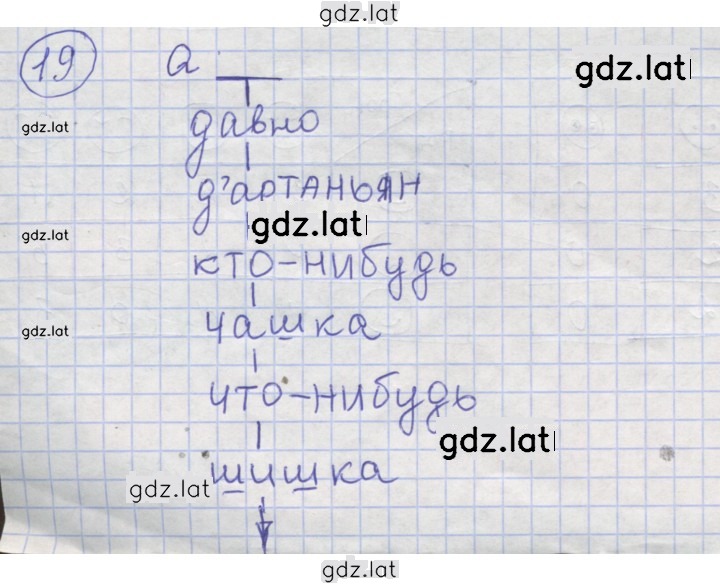 gdz.lat
19 a
gdz.lat
gdz.lat
давно
д'артаньян
gdz.lat
gdz.lat
кто-нибудь
чашка
gdz.lat
что-нибудь
gdz.lat
шишка
gdz.lat
gdz.lat